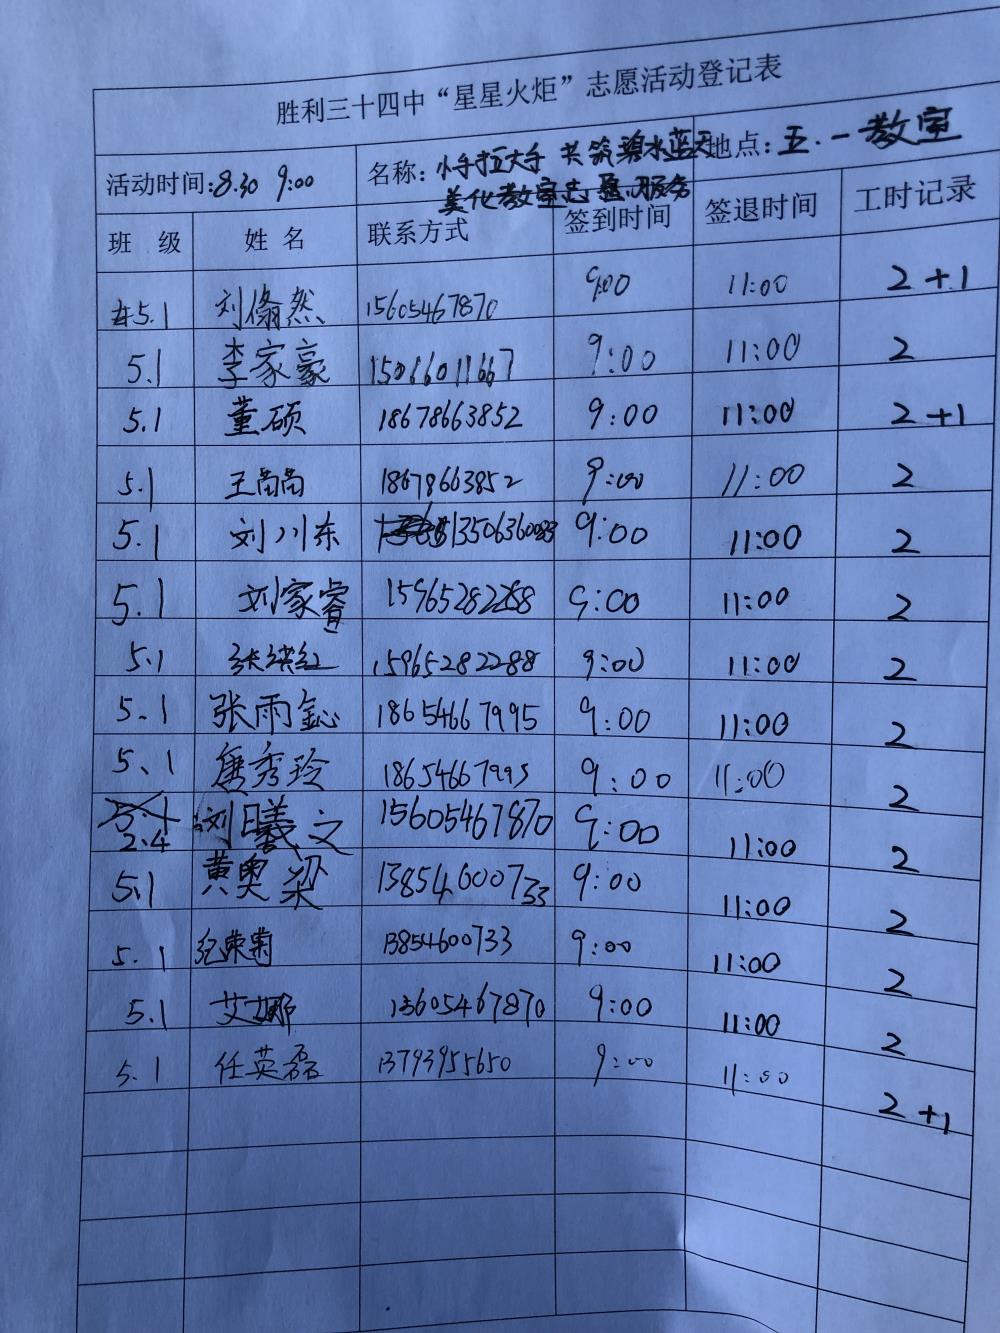 胜利三十四中“星星火炬”志愿活动登记表
活动时间:8.30 9:00 名称: 小手拉大手 共筑碧水蓝天 地点: 五.一教室
美化教室志愿服务
班 级 姓 名 联系方式 签到时间 签退时间 工时记录
5.1 刘翛然 15605467870 9:00 11:00 2+1
5.1 李家豪 15066011667 9:00 11:00 2
5.1 董硕 18678663852 9:00 11:00 2+1
5.1 王芮芮 18678663852 9:00 11:00 2
5.1 刘川东 13506360083 9:00 11:00 2
5.1 刘家睿 15965282288 9:00 11:00 2
5.1 张洪红 15965282288 9:00 11:00 2
5.1 张雨鈊 18654667995 9:00 11:00 2
5、1 唐秀玲 18654667995 9:00 11:00 2
2.4 刘曦文 15605467870 9:00 11:00 2
5.1 黄奥梁 13854600733 9:00 11:00 2
5.1 纪荣菊 13854600733 9:00 11:00 2
5.1 艾娜 13605467870 9:00 11:00 2
5.1 任英磊 13793955650 9:00 11:00 2+1